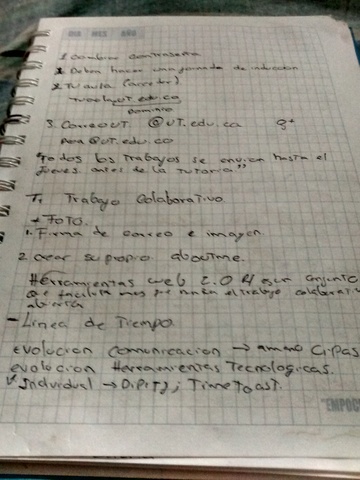 1. Cambiar Contraseña
2. Deben hacer una jornada de induccion
2. Tu aula (acceder)
UT.edu.co
Dominio
3. Correo UT @UT.edu.co
para @UT.edu.co
"Todos los trabajos se envian hasta el
jueves antes de la Tutoria."
T1 Trabajo Colaborativo
+ FOTO.
1. Firma de correo e imagen.
2 crear su propio aboutme.
Herramientas web 2.0 conjunto
que el trabajo colaborativo
- Linea de Tiempo
evolucion comunicacion → CIPAS
evolucion Herramientas Tecnologicas.
Individual → Dipity; TimeToast.
"EMPOC